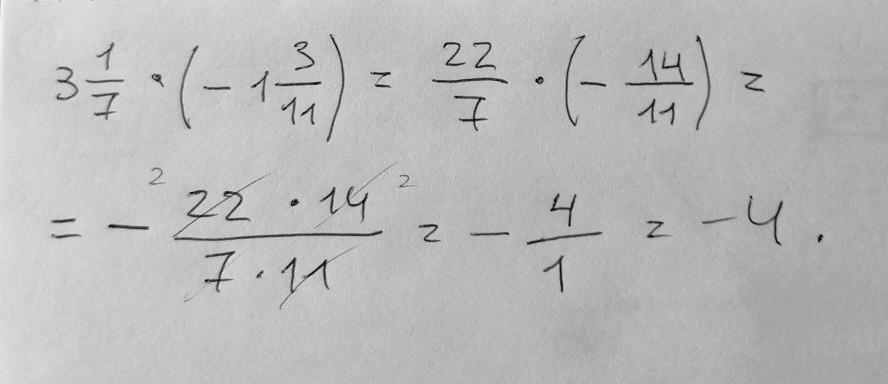 3 1/7 · (- 1 3/11) = 22/7 · (- 14/11) =
= - ²22 · 14²/7 · 11 = - 4/1 = -4.